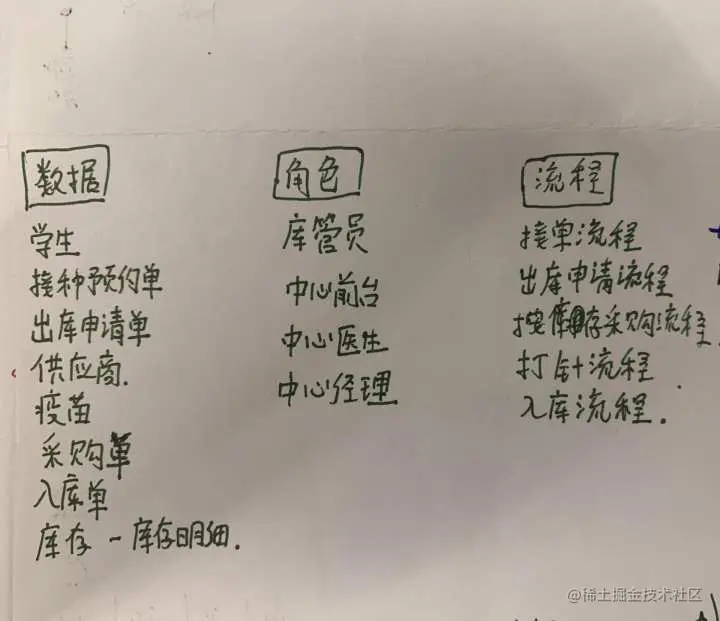 数据
学生
接种预约单
出库申请单
供应商.
疫苗
采购单
入库单
库存 - 库存明细.
角色
库管员
中心前台
中心医生
中心经理
流程
接单流程
出库申请流程
库存采购流程.
打针流程.
入库流程.
@稀土掘金技术社区